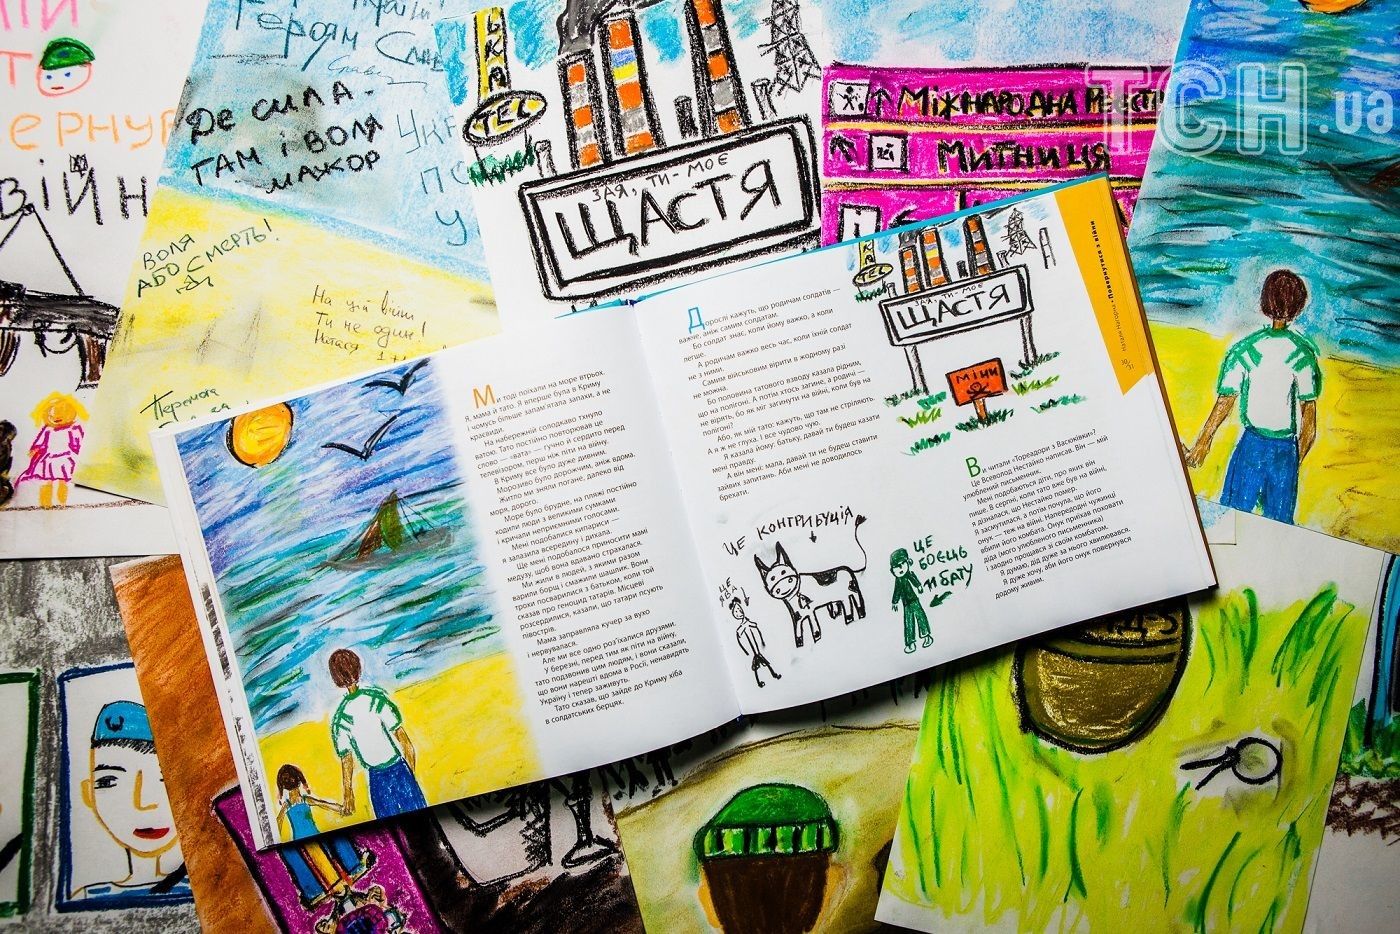 ДЕ СИЛА -
ТАМ І ВОЛЯ
МАЖОР
ВОЛЯ
АБО СМЕРТЬ!
На цій війні
Ти не один!
Наталя
Перемога
Героям
ТЕС
ЗАЯ, ТИ-МОЄ
ЩАСТЯ
МІЖНАРОДНА
МИТНИЦЯ
ТСН.ua
Ми тоді поїхали на море втрьох.
Я, мама й тато. Я вперше була в Криму
і чомусь більше запам'ятала запахи, а не
краєвиди.
На набережній солодкаво тхнуло
ватою. Тато постійно повторював це
слово — «вата» — гучно й сердито перед
телевізором, перш ніж піти на війну.
В Криму все було дуже дивним.
Морозиво було дорожчим, аніж вдома.
Житло ми зняли погане, далеко від
моря, дорого.
Море було брудне, на пляжі постійно
ходили люди з великими сумками
і кричали неприємними голосами.
Мені подобалися кипариси —
я залазила всередину і дихала.
Ще мені подобалося приносити мамі
медузу, щоб вона вдавано страхалася.
Ми жили в людей, з якими разом
варили борщ і смажили шашлик. Вони
трохи посварилися з батьком, коли той
сказав про геноцид татарів. Місцеві
розсердилися, казали, що татари псують
півострів.
Мама заправляла кучер за вухо
і нервувалася.
Але ми все одно роз'їхалися друзями.
У березні, перед тим як піти на війну,
тато подзвонив цим людям, і вони сказали,
що вони нарешті вдома в Росії, ненавидять
Україну і тепер заживуть.
Тато сказав, що зайде до Криму хіба
в солдатських берцях.
Дорослі кажуть, що родичам солдатів —
важче, аніж самим солдатам.
Бо солдат знає, коли йому важко, а коли
легше.
А родичам важко весь час, коли їхній солдат
не з ними.
Самим військовим вірити в жодному разі
не можна.
Бо половина татового взводу казала рідним,
що на полігоні. А потім хтось загине, а родичі —
не вірять, бо як міг загинути на війні, коли був на
полігоні?
Або, як мій тато: кажуть, що там не стріляють.
А я ж не глуха. І все чудово чую.
Я казала йому: батьку, давай ти будеш казати
мені правду.
А він мені: мала, давай ти не будеш ставити
зайвих запитань. Аби мені не доводилось
брехати.
ТЕС
ЗАЯ, ТИ-МОЄ
ЩАСТЯ
МІНИ
Повернутися з війни
30/31
Ви читали «Тореадори з Васюківки»?
Це Всеволод Нестайко написав. Він — мій
улюблений письменник.
Мені подобаються діти, про яких він
пише. В серпні, коли тато вже був на війні,
я дізналася, що Нестайко помер.
Я засмутилася, а потім почула, що його
онук — теж на війні. Напередодні чужинці
вбили його комбата. Онук приїхав поховати
діда (мого улюбленого письменника)
і заодно прощався зі своїм комбатом.
Я думаю, дід дуже за нього хвилювався.
Я дуже хочу, аби його онук повернувся
додому живим.
ЦЕ КОНТРИБУЦІЯ
ЦЕ
ЯВА
ЦЕ
БОЄЦЬ
11 БАТУ